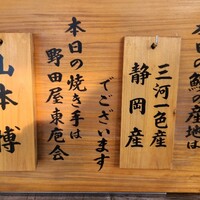 本日の鰻の産地は
三河一色産
静岡産
でございます
本日の焼き手は
野田屋東庖会
山本 博